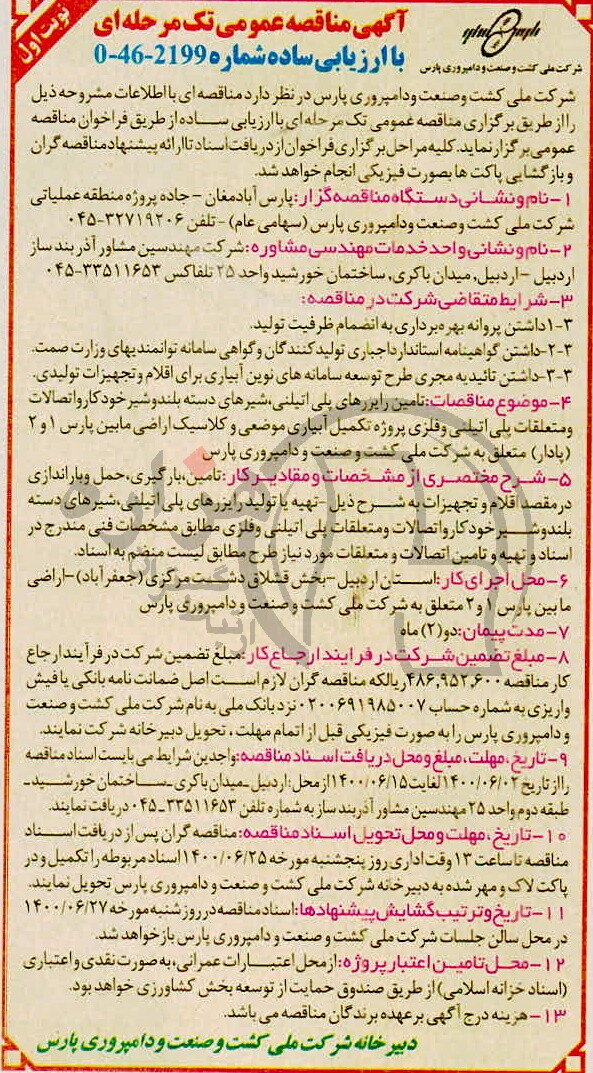 نوبت اول
آگهی مناقصه عمومی تک مرحله ای
با ارزیابی ساده شماره 2199-46-0
شرکت ملی کشت و صنعت و دامپروری پارس
شرکت ملی کشت و صنعت و دامپروری پارس در نظر دارد مناقصه ای با اطلاعات مشروحه ذیل
را از طریق برگزاری مناقصه عمومی تک مرحله ای با ارزیابی ساده از طریق فراخوان مناقصه
عمومی برگزار نماید. کلیه مراحل برگزاری فراخوان از دریافت اسناد تا ارائه پیشنهاد مناقصه گران
و بازگشایی پاکت ها بصورت فیزیکی انجام خواهد شد.
۱-نام و نشانی دستگاه مناقصه گزار: پارس آبادمغان - جاده پروژه منطقه عملیاتی
شرکت ملی کشت و صنعت و دامپروری پارس (سهامی عام) - تلفن ۳۲۷۱۹۲۰۶-۰۴۵
۲-نام و نشانی واحد خدمات مهندسی مشاوره: شرکت مهندسین مشاور آذر بند ساز
اردبیل -اردبیل، میدان باکری، ساختمان خورشید واحد ۲۵ تلفاکس ۳۳۵۱۱۶۵۳-۰۴۵
۳-شرایط متقاضی شرکت در مناقصه:
۳-۱داشتن پروانه بهره برداری به انضمام ظرفیت تولید.
۳-۲-داشتن گواهینامه استاندارد اجباری تولید کنندگان و گواهی سامانه توانمندیهای وزارت صمت.
۳-۳-داشتن تائیدیه مجری طرح توسعه سامانه های نوین آبیاری برای اقلام و تجهیزات تولیدی.
۴-موضوع مناقصات: تامین رایزرهای پلی اتیلنی، شیرهای دسته بلند و شیر خودکار و اتصالات
و متعلقات پلی اتیلنی و فلزی پروژه تکمیل آبیاری موضعی و کلاسیک اراضی مابین پارس ۱ و ۲
(پادار) متعلق به شرکت ملی کشت و صنعت و دامپروری پارس
۵-شرح مختصری از مشخصات و مقادیر کار: تامین، بارگیری، حمل و باراندازی
در مقصد اقلام و تجهیزات به شرح ذیل -تهیه یا تولید رایزرهای پلی اتیلنی، شیرهای دسته
بلند و شیر خودکار و اتصالات و متعلقات پلی اتیلنی و فلزی مطابق مشخصات فنی مندرج در
اسناد و تهیه و تامین اتصالات و متعلقات مورد نیاز طرح مطابق لیست منضم به اسناد.
۶-محل اجرای کار: استان اردبیل -بخش قشلاق دشت مرکزی (جعفر آباد) -اراضی
ما بین پارس ۱ و ۲ متعلق به شرکت ملی کشت و صنعت و دامپروری پارس
۷-مدت پیمان: دو (۲) ماه
۸-مبلغ تضمین شرکت در فرایند ارجاع کار: مبلغ تضمین شرکت در فرآیند ارجاع
کار مناقصه ۴۸۶,۹۵۲,۶۰۰ ریالکه مناقصه گران لازم است اصل ضمانت نامه بانکی یا فیش
واریزی به شماره حساب ۰۲۰۰۶۹۱۹۸۵۰۰۷ نزد بانک ملی به نام شرکت ملی کشت و صنعت
و دامپروری پارس را به صورت فیزیکی قبل از اتمام مهلت، تحویل دبیرخانه شرکت نمایند.
۹-تاریخ، مهلت، مبلغ و محل دریافت اسناد مناقصه: واجدین شرایط می بایست اسناد مناقصه
را از تاریخ ۱۴۰۰/۰۶/۰۲ لغایت ۱۴۰۰/۰۶/۱۵ از محل: اردبیل -میدان باکری -ساختمان خورشید-
طبقه دوم واحد ۲۵ مهندسین مشاور آذربند ساز به شماره تلفن ۳۳۵۱۱۶۵۳-۰۴۵ دریافت نمایند.
۱۰-تاریخ، مهلت و محل تحویل اسناد مناقصه: مناقصه گران پس از دریافت اسناد
مناقصه تا ساعت ۱۳ وقت اداری روز پنجشنبه مورخه ۱۴۰۰/۰۶/۲۵ اسناد مربوطه را تکمیل و در
پاکت لاک و مهر شده به دبیرخانه شرکت ملی کشت و صنعت و دامپروری پارس تحویل نمایند.
۱۱-تاریخ و ترتیب گشایش پیشنهادها: اسناد مناقصه در روز شنبه مورخه ۱۴۰۰/۰۶/۲۷
در محل سالن جلسات شرکت ملی کشت و صنعت و دامپروری پارس باز خواهد شد.
۱۲-محل تامین اعتبار پروژه: از محل اعتبارات عمرانی، به صورت نقدی و اعتباری
(اسناد خزانه اسلامی) از طریق صندوق حمایت از توسعه بخش کشاورزی خواهد بود.
۱۳-هزینه درج آگهی بر عهده برندگان مناقصه می باشد.
دبیر خانه شرکت ملی کشت و صنعت و دامپروری پارس